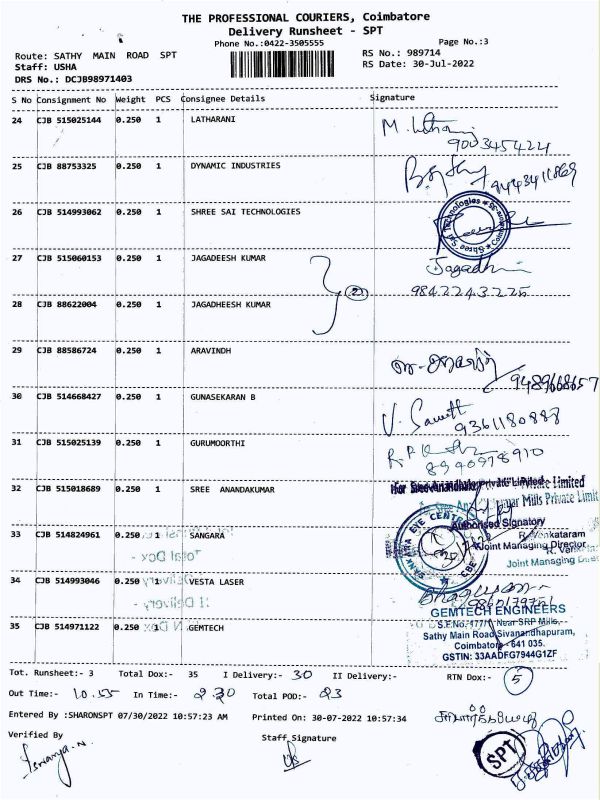 THE PROFESSIONAL COURIERS, Coimbatore
Delivery Runsheet - SPT
Phone No.:0422-3505555 Page No.:3
Route: SATHY MAIN ROAD SPT RS No.: 989714
Staff: USHA RS Date: 30-Jul-2022
DRS No.: DCJB98971403
S No Consignment No Weight PCS Consignee Details Signature
24 CJB 515025144 0.250 1 LATHARANI
9003455424
25 CJB 88753325 0.250 1 DYNAMIC INDUSTRIES
9443411869
26 CJB 514993062 0.250 1 SHREE SAI TECHNOLOGIES
27 CJB 515060153 0.250 1 JAGADEESH KUMAR
9842243225
28 CJB 88622004 0.250 1 JAGADHEESH KUMAR
29 CJB 88586724 0.250 1 ARAVINDH
9489668657
30 CJB 514668427 0.250 1 GUNASEKARAN B
9361180888
31 CJB 515025139 0.250 1 GURUMOORTHI
8990978910
32 CJB 515018689 0.250 1 SREE ANANDKUMAR
Mills Private Limit
Authorised Signatory
33 CJB 514824961 0.250 1 SANGARA
R. Venkataram
Joint Managing Director
Joint Managing
34 CJB 514993046 0.250 1 VESTA LASER
GEMTECH ENGINEERS
S.F.No. 477/1 Near SRP Mills,
35 CJB 514971122 0.250 1 GEMTECH
Sathy Main Road Sivanandhapuram,
Coimbatore - 641 035.
GSTIN: 33AADFG7944G1ZF
Tot. Runsheet:- 3 Total Dox:- 35 I Delivery:- 30 II Delivery:- RTN Dox:- 5
Out Time:- 10.55 In Time:- 2.30 Total POD:- 23
Entered By :SHARONSPT 07/30/2022 10:57:23 AM Printed On: 30-07-2022 10:57:34
Verified By Staff Signature
SPT